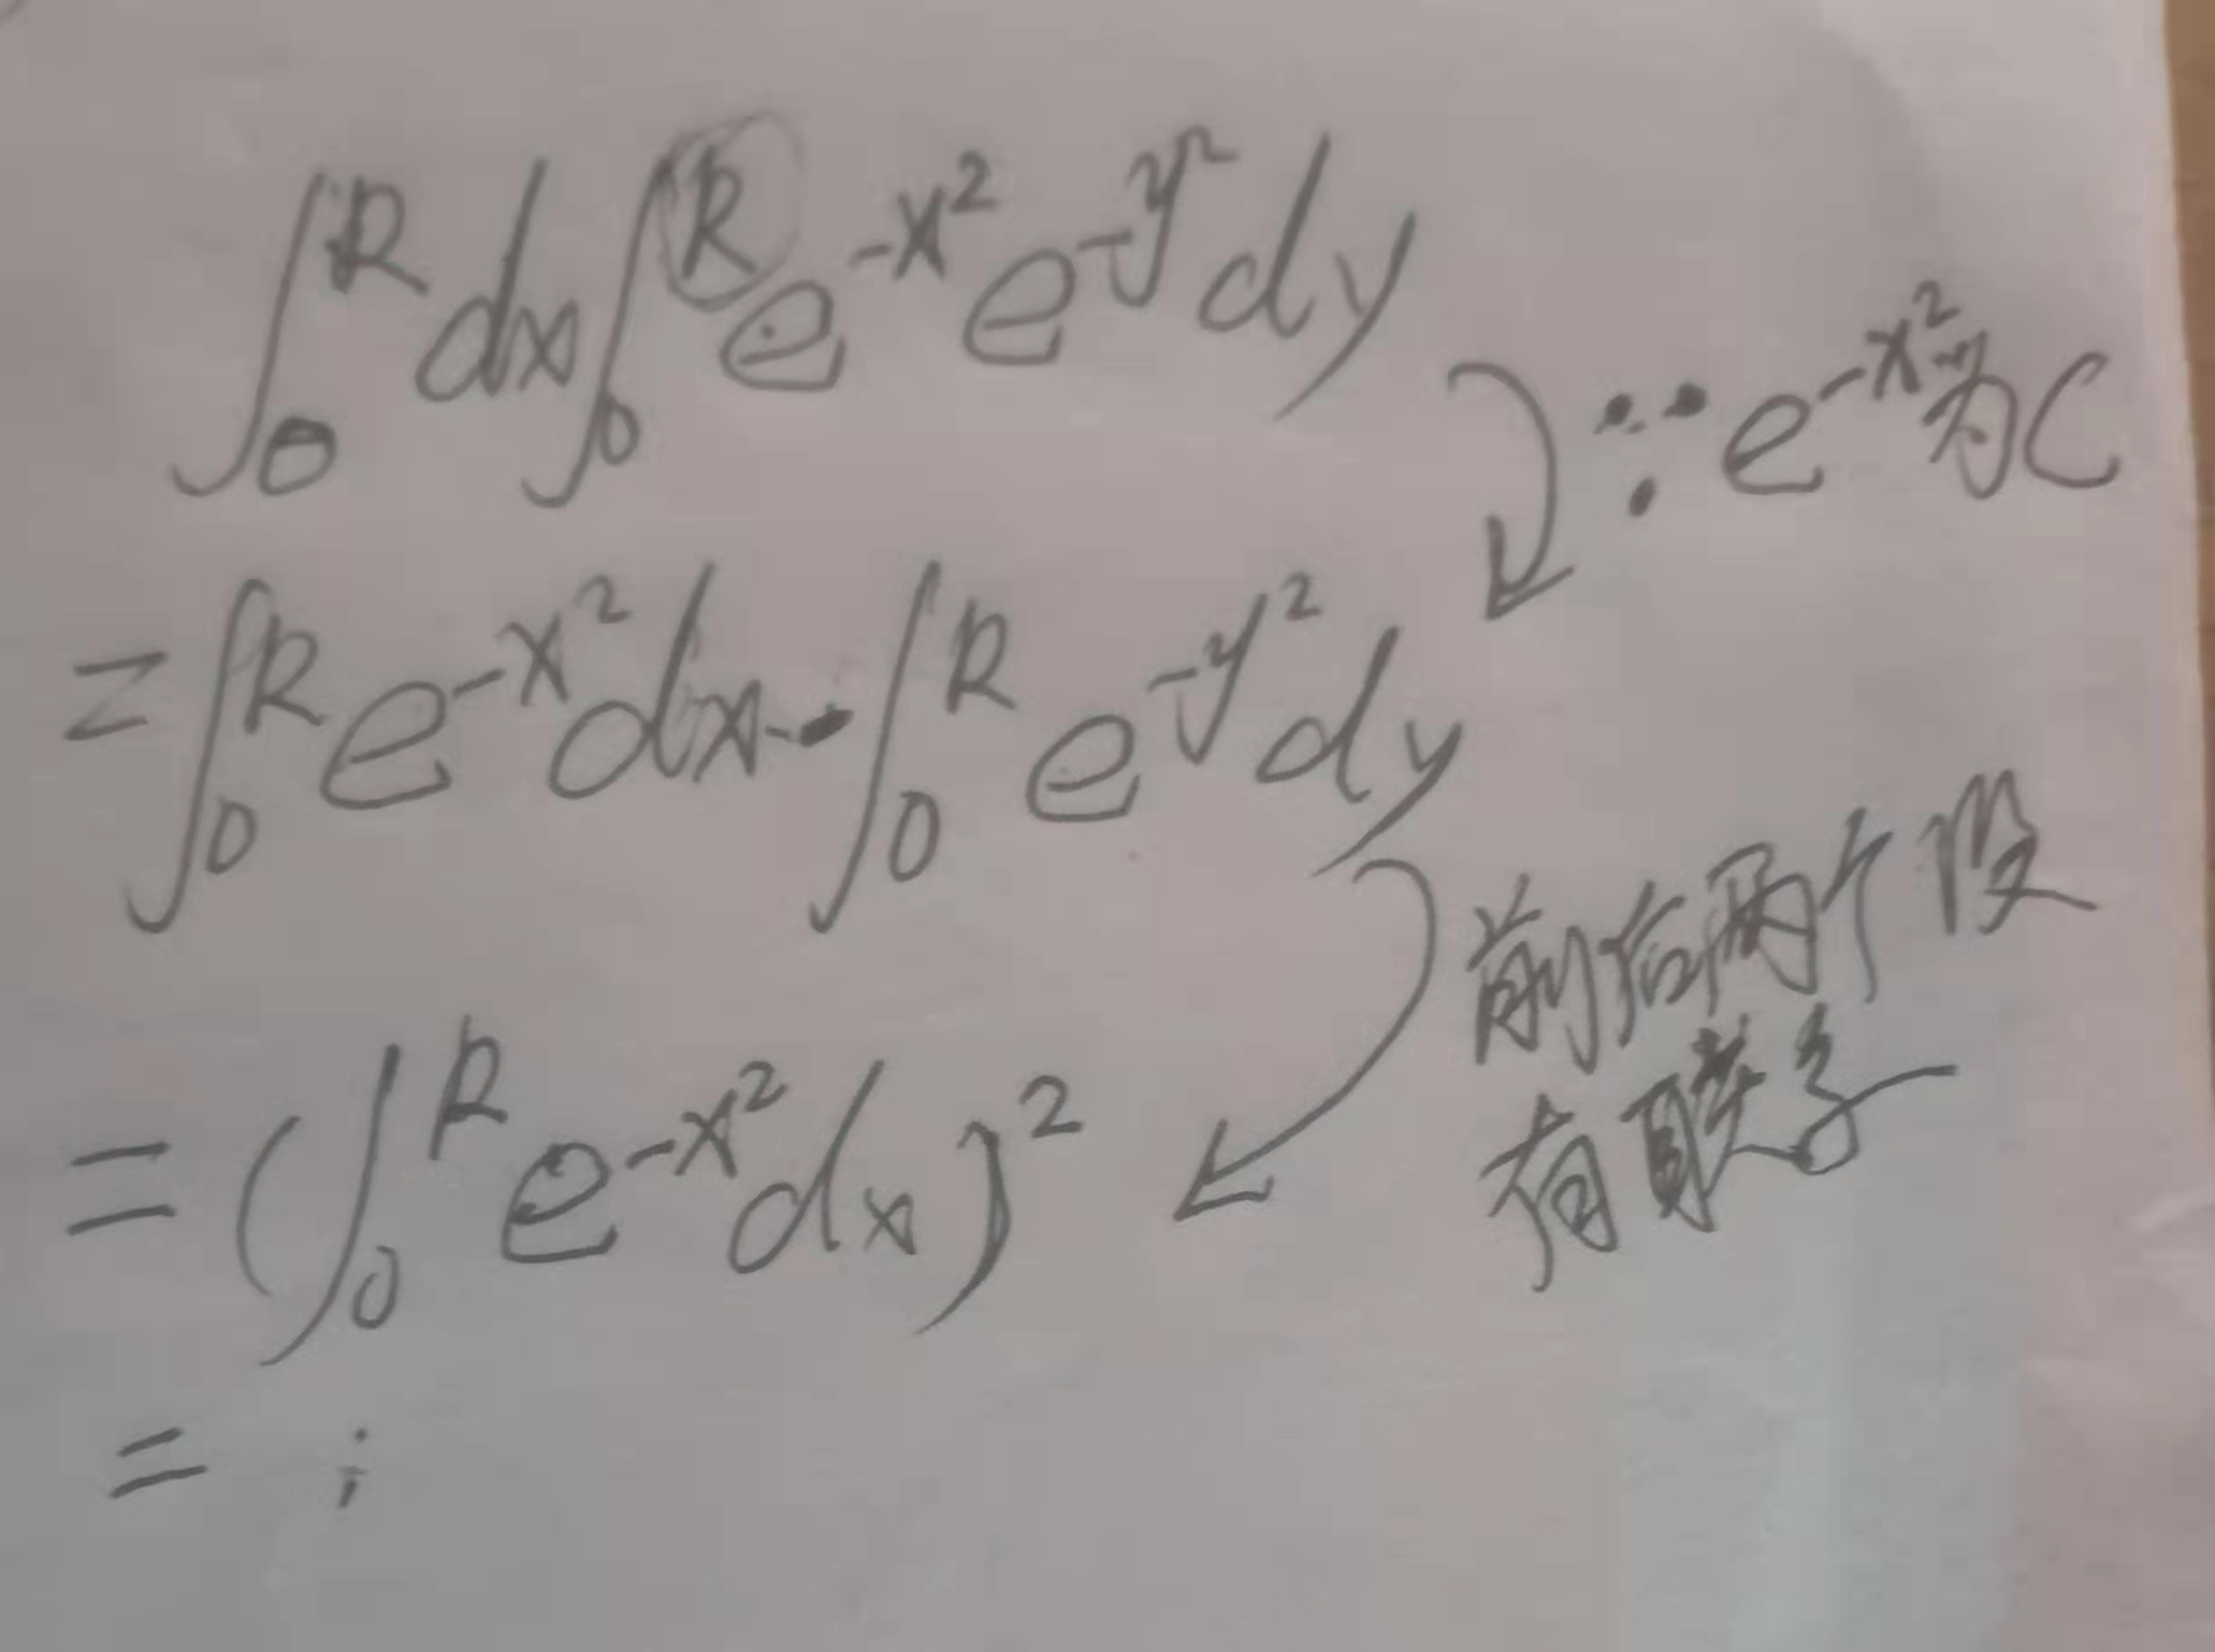 ∫₀ᴿ dx ∫₀ᴿ e^{-x²} e^{-y²} dy
∵ e^{-x²} 为 C
= ∫₀ᴿ e^{-x²} dx · ∫₀ᴿ e^{-y²} dy
前后两个没
有联系
= (∫₀ᴿ e^{-x²} dx)²
= ⋮